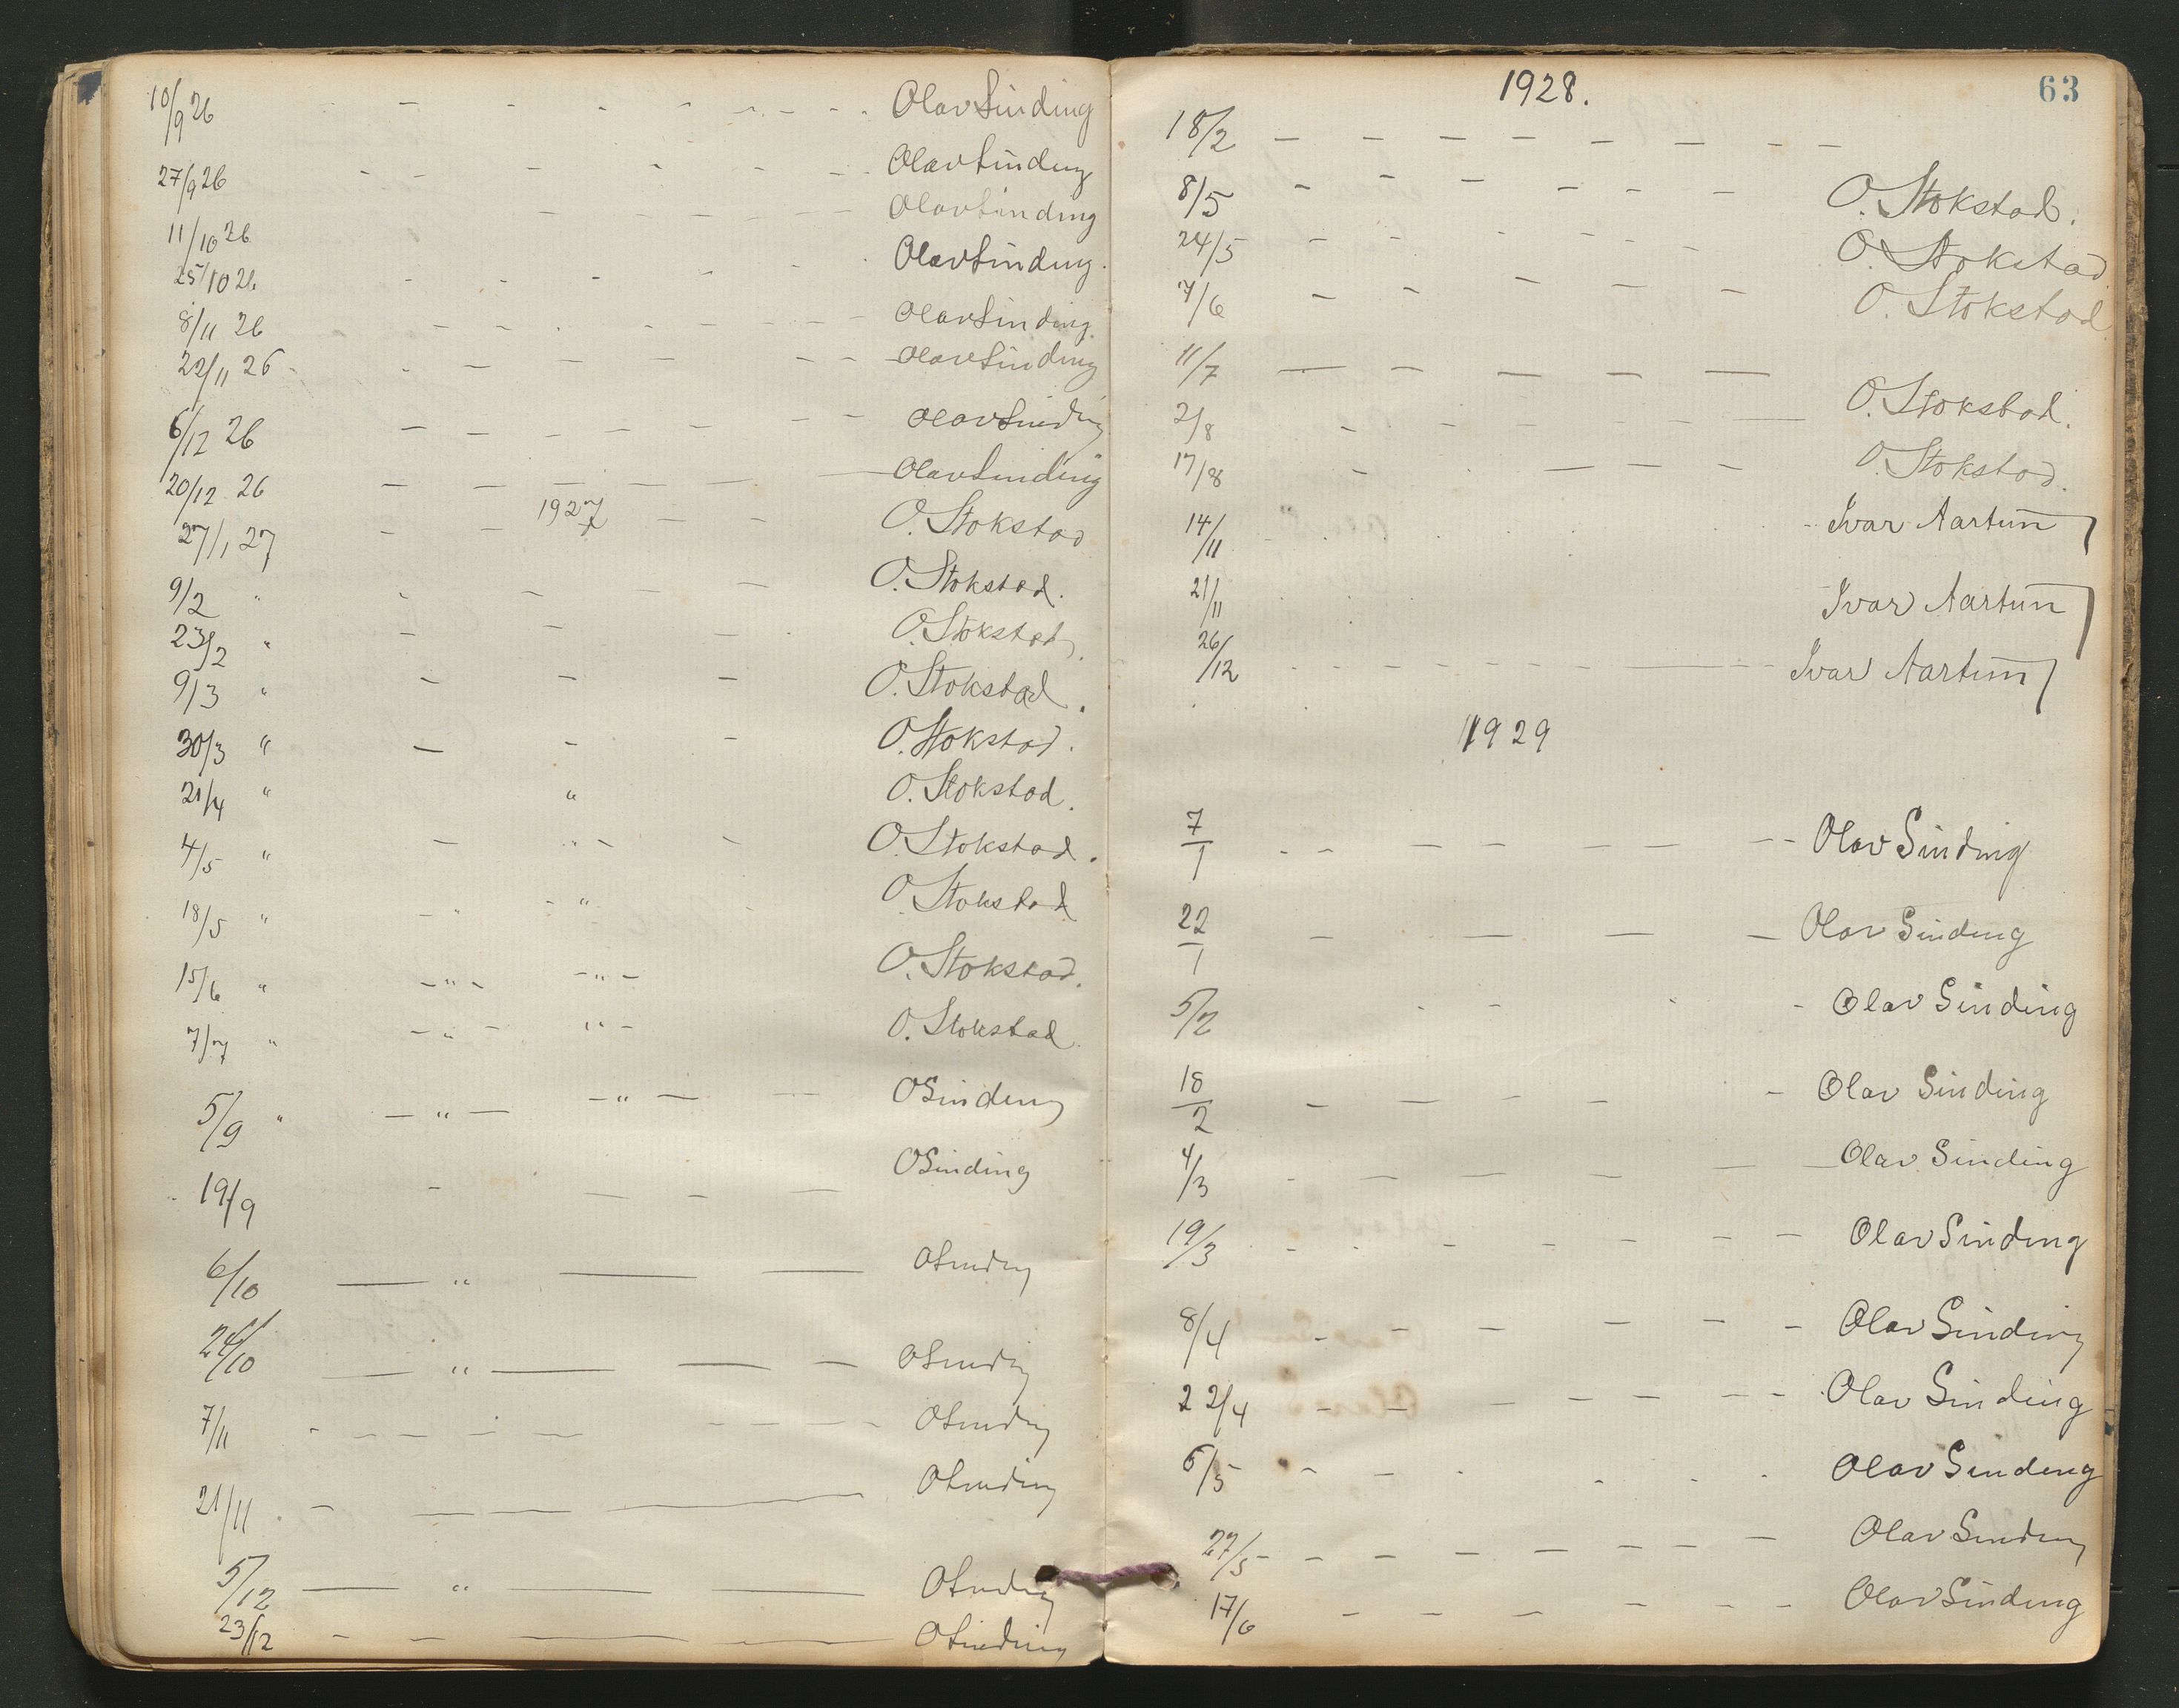 10/9 26 - - - - - - - Olav Sinding
27/9 26 - - - - - - - Olav Sinding
11/10 26 - - - - - - Olav Sinding
25/10 26 - - - - - Olav Sinding.
8/11 26 - - - - - - - Olav Sinding.
22/11 26 - - - - - - - Olav Sinding
6/12 26 - - - - - - - Olav Sinding
20/12 26 - - - - - - Olav Sinding
1927
27/1 27 - - - - O. Stokstad
9/2 " - - - - O. Stokstad.
23/2 " - - - - O. Stokstad.
9/3 " - - - O. Stokstad.
30/3 " - - - O. Stokstad.
21/4 " " O. Stokstad.
4/5 " - " - - O. Stokstad.
18/5 " - " - " - O. Stokstad
15/6 " - " - - " - O. Stokstad.
7/7 " - " - " - O. Stokstad
5/9 " - " - - " - - - O Sinding
19/9 - - - - O Sinding
6/10 - " - - O Sinding
24/10 - " - - - O Sinding
7/11 - - - - - - - - - O Sinding
21/11 - - - - O Sinding
5/12 - " - - O Sinding
23/12 - - - - O Sinding
63
1928.
18/2 - - - - - - - - -
8/5 - - - - - - - O. Stokstad.
24/5 - - - - - - O. Stokstad
7/6 - - - - - O. Stokstad
11/7 - - - - -
2/8 - - - - - - O. Stokstad.
17/8 - - - - - O. Stokstad.
14/11 - - - - - Ivar Aartun
21/11 - - - Ivar Aartun
26/12 - - - - - - - - - - Ivar Aartun
1929
7/1 - - - - - - - - Olav Sinding
22/1 - - - - Olav Sinding
5/2 - - - - Olav Sinding
18/2 - - - - - Olav Sinding
4/3 - - - - - - Olav Sinding
19/3 - - - - - - - - Olav Sinding
8/4 - - - - - - Olav Sinding
22/4 - - - - - - - Olav Sinding
6/5 - - - - - - Olav Sinding
27/5 - - - - - - - - - Olav Sinding
17/6 - - - - - - Olav Sinding